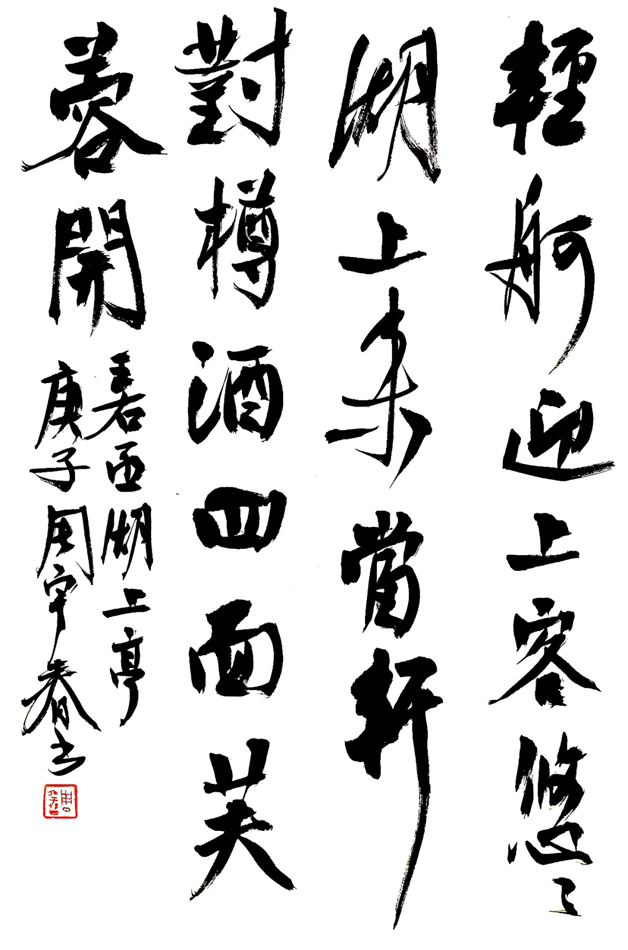 輕舸迎上客悠〻
湖上来當軒
對樽酒四面芙
蓉開
書西湖上亭
庚子周宇春书